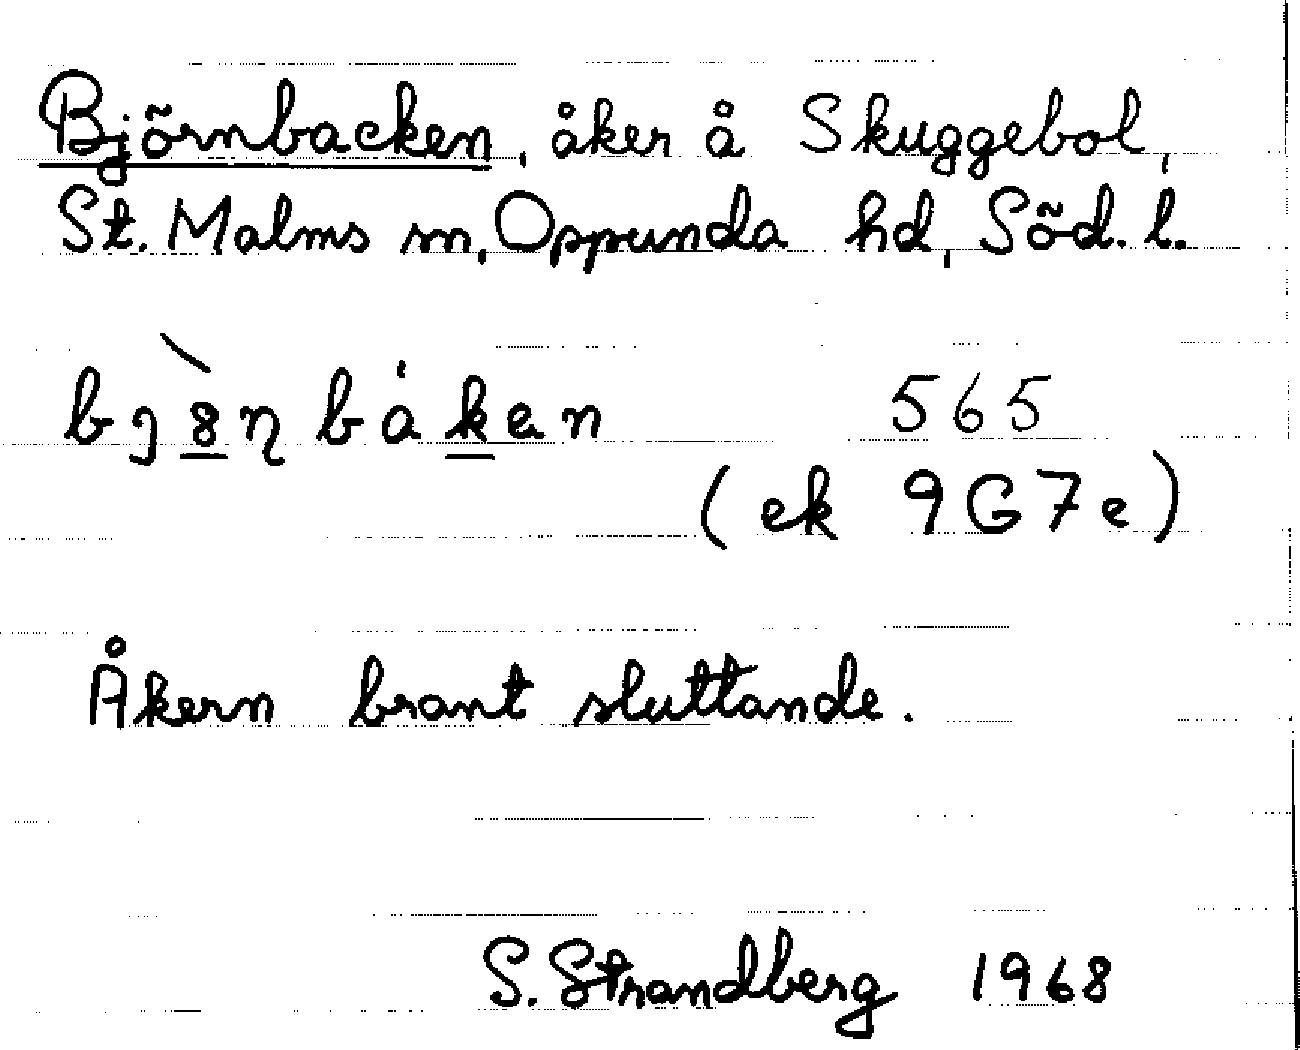 Björnbacken, åker å Skuggebol,
St. Malms sn, Oppunda hd, Söd. l.
565
(ek 9G7e)
Åkern brant sluttande.
S. Strandberg 1968